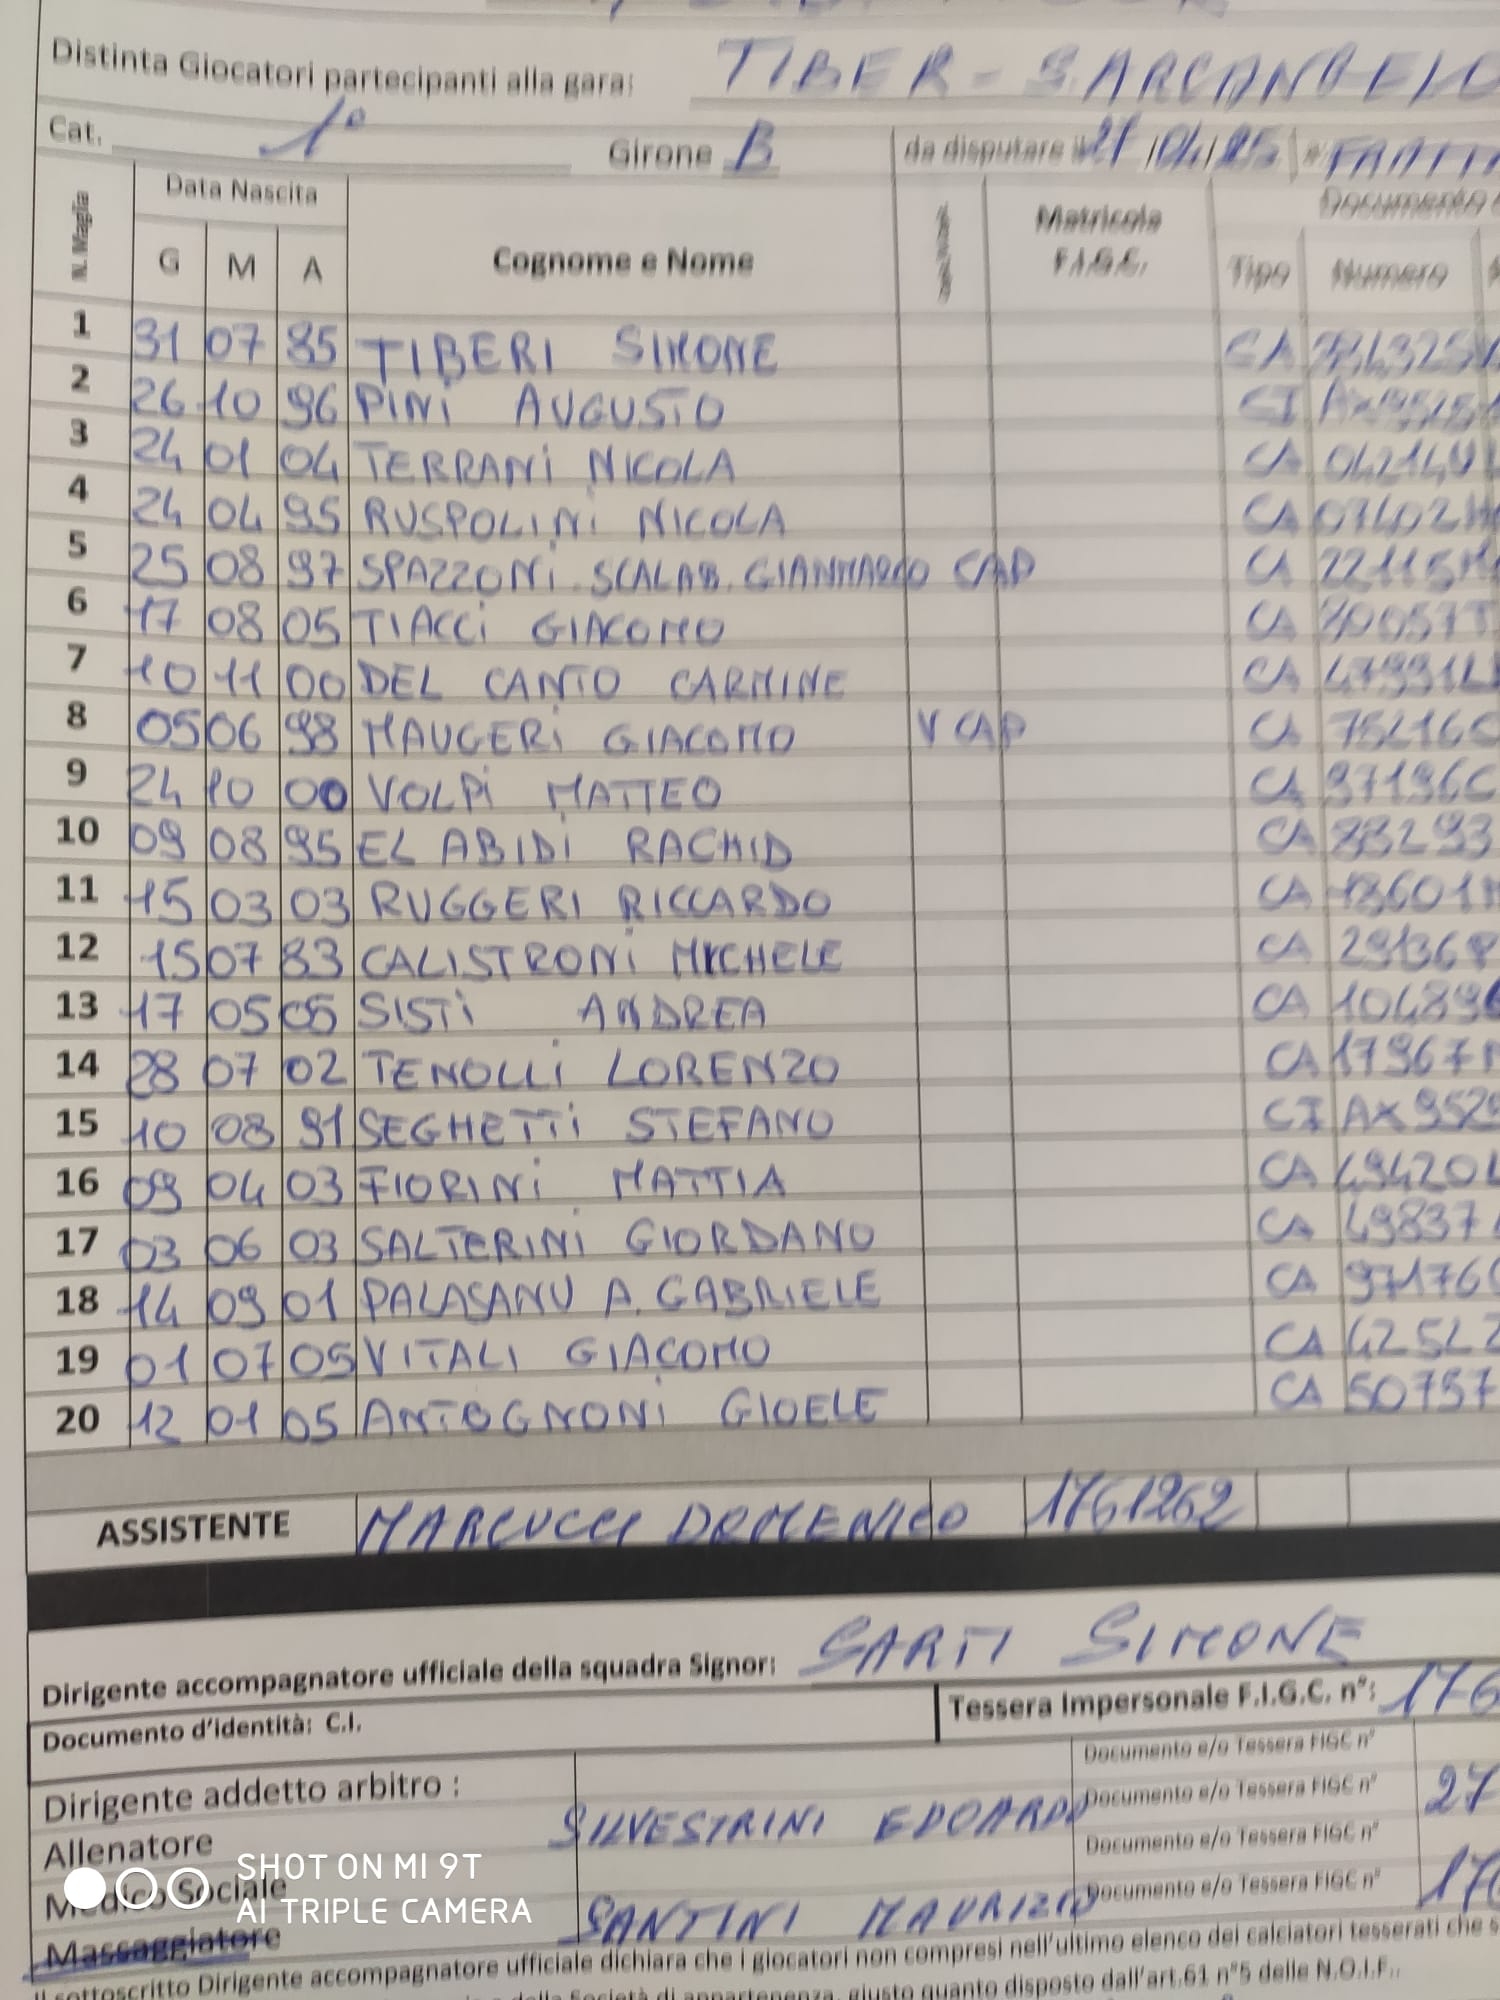 Distinta Giocatori partecipanti alla gara: TIBER - S. ARCANGELO
Cat. 1° Girone B da disputare il /04/25
N. Maglia Data Nascita Cognome e Nome Matricola F.I.G.C. Documento
G M A Tipo Numero
1 31 07 85 TIBERI SIMONE CA
2 26 10 96 PINI AUGUSTO CI
3 24 01 04 TERRANI NICOLA CA
4 24 04 95 RUSPOLINI NICOLA CA
5 25 08 97 SPAZZONI SCALAB. GIANMARCO CAP CA
6 17 08 05 TIACCI GIACOMO CA
7 10 11 00 DEL CANTO CARMINE CA
8 05 06 98 MAUGERI GIACOMO V CAP CA
9 24 10 00 VOLPI MATTEO CA
10 09 08 95 EL ABIDI RACHID CA
11 15 03 03 RUGGERI RICCARDO CA
12 15 07 83 CALISTRONI MICHELE CA
13 17 05 05 SISTI ANDREA CA
14 28 07 02 TENOLLI LORENZO CA
15 10 08 91 SEGHETTI STEFANO CI
16 09 04 03 FIORINI MATTIA CA
17 03 06 03 SALTERINI GIORDANO CA
18 14 09 01 PALASANU A. GABRIELE CA
19 01 07 05 VITALI GIACOMO CA
20 12 01 05 ANTOGNONI GIOELE CA
ASSISTENTE MARCUCCI DOMENICO 1761262
Dirigente accompagnatore ufficiale della squadra Signor: SARTI SIMONE
Documento d'identità: C.I. Tessera Impersonale F.I.G.C. n°: 176
Dirigente addetto arbitro : Documento e/o Tessera FIGC n°
Allenatore SILVESTRINI EDOARDO Documento e/o Tessera FIGC n° 27
Medico Sociale Documento e/o Tessera FIGC n°
Massaggiatore SANTINI MAURIZIO Documento e/o Tessera FIGC n° 176
Il sottoscritto Dirigente accompagnatore ufficiale dichiara che i giocatori non compresi nell'ultimo elenco dei calciatori tesserati che s
della Società di appartenenza, giusto quanto disposto dall'art.61 n°5 delle N.O.I.F..
SHOT ON MI 9T
AI TRIPLE CAMERA